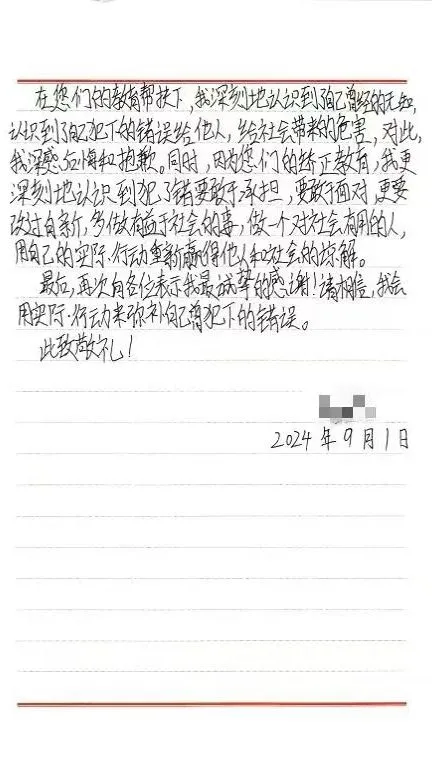 在您们的教育帮扶下，我深刻地认识到了自己曾经的无知，
认识到了自己犯下的错误给他人，给社会带来的危害，对此，
我深感后悔和抱歉。同时，因为您们的矫正教育，我更
深刻地认识到犯了错要敢于承担，要敢于面对，更要
改过自新，多做有益于社会的事，做一个对社会有用的人，
用自己的实际行动重新赢得他人和社会的谅解。
最后，再次向各位表示我最诚挚的感谢！请相信，我会
用实际行动来弥补自己曾犯下的错误。
此致敬礼！
2024年9月1日